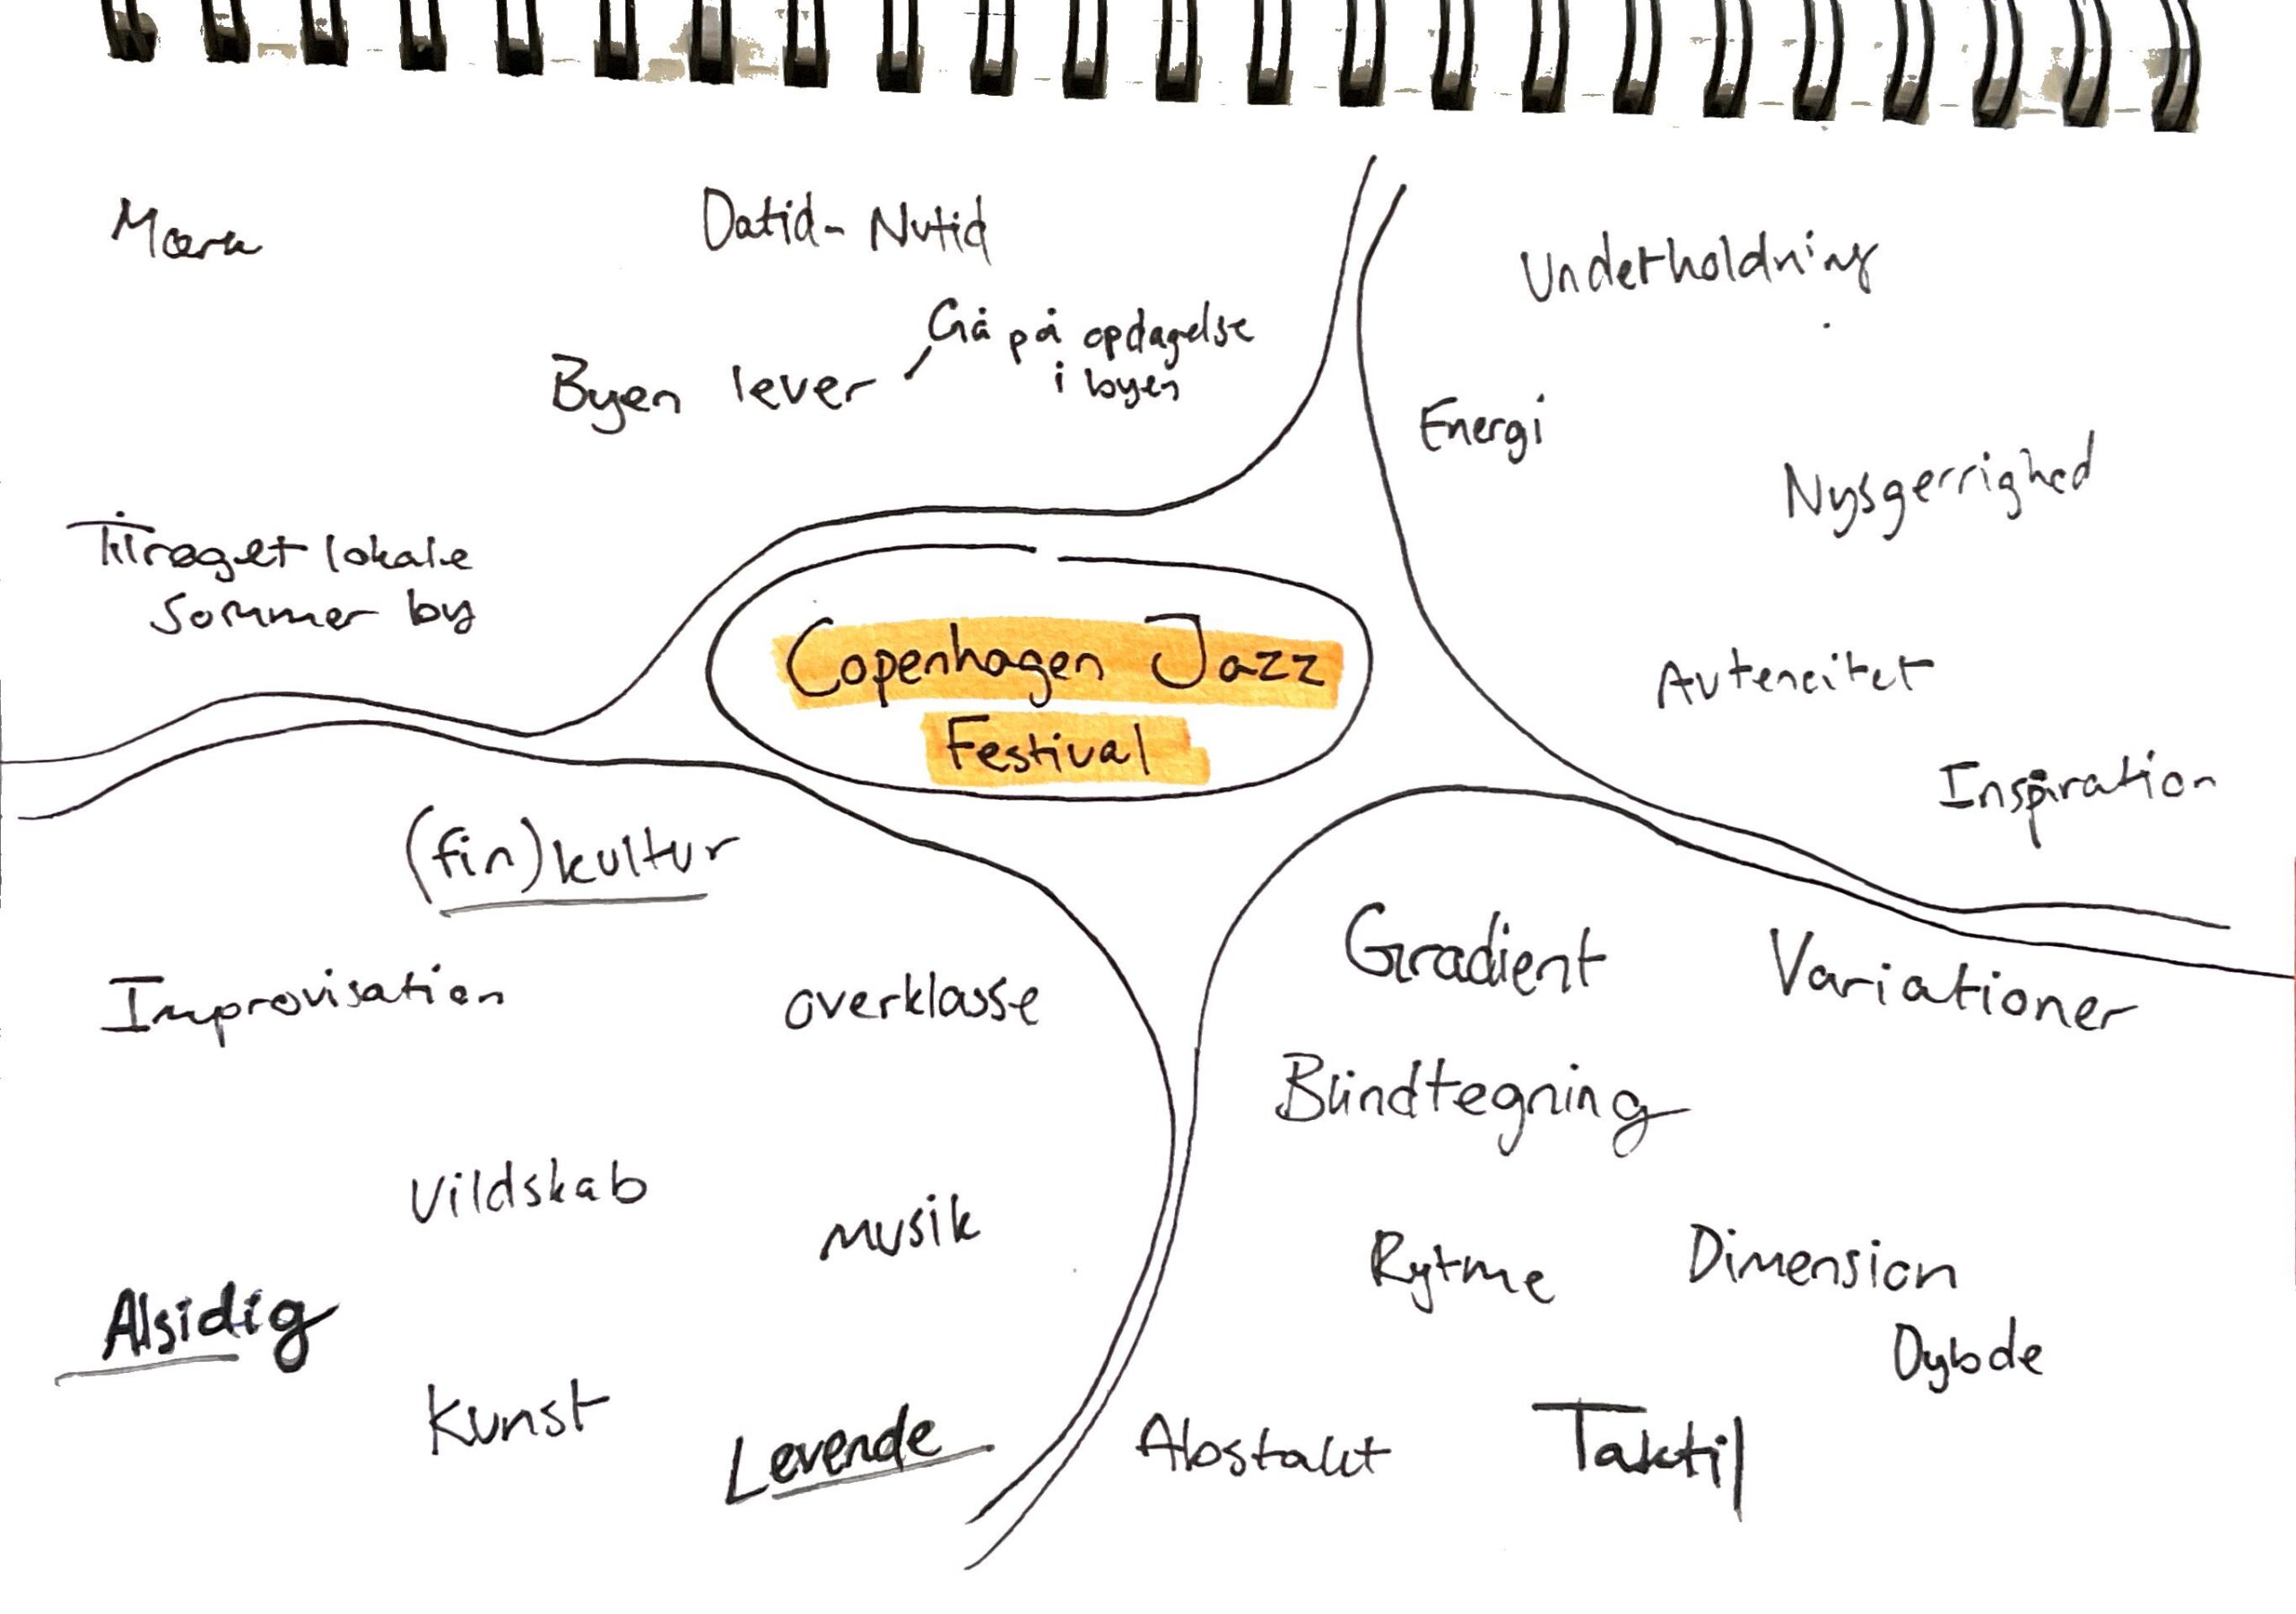 Datid - Nutid
Gå på opdagelse
i byen
Byen lever
lokale
Sommer by
Underholdning
Energi
Nysgerrighed
Autencitet
Inspiration
Copenhagen Jazz
Festival
(fin)kultur
Improvisation
overklasse
Vildskab
musik
Alsidig
Kunst
Levende
Gradient
Variationer
Blindtegning
Rytme
Dimension
Dybde
Abstakt
Taktil